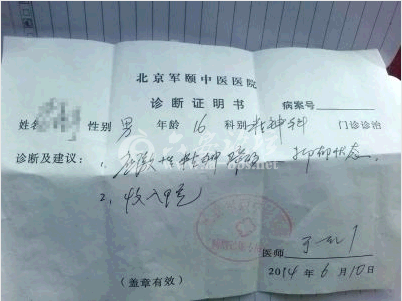 北京军颐中医医院
诊断证明书 病案号
姓名 性别 男 年龄 16 科别 精神科 门诊诊治
诊断及建议：1、应激性精神障碍 抑郁状态
2、收入9元
医师
2014年6月10日
（盖章有效）